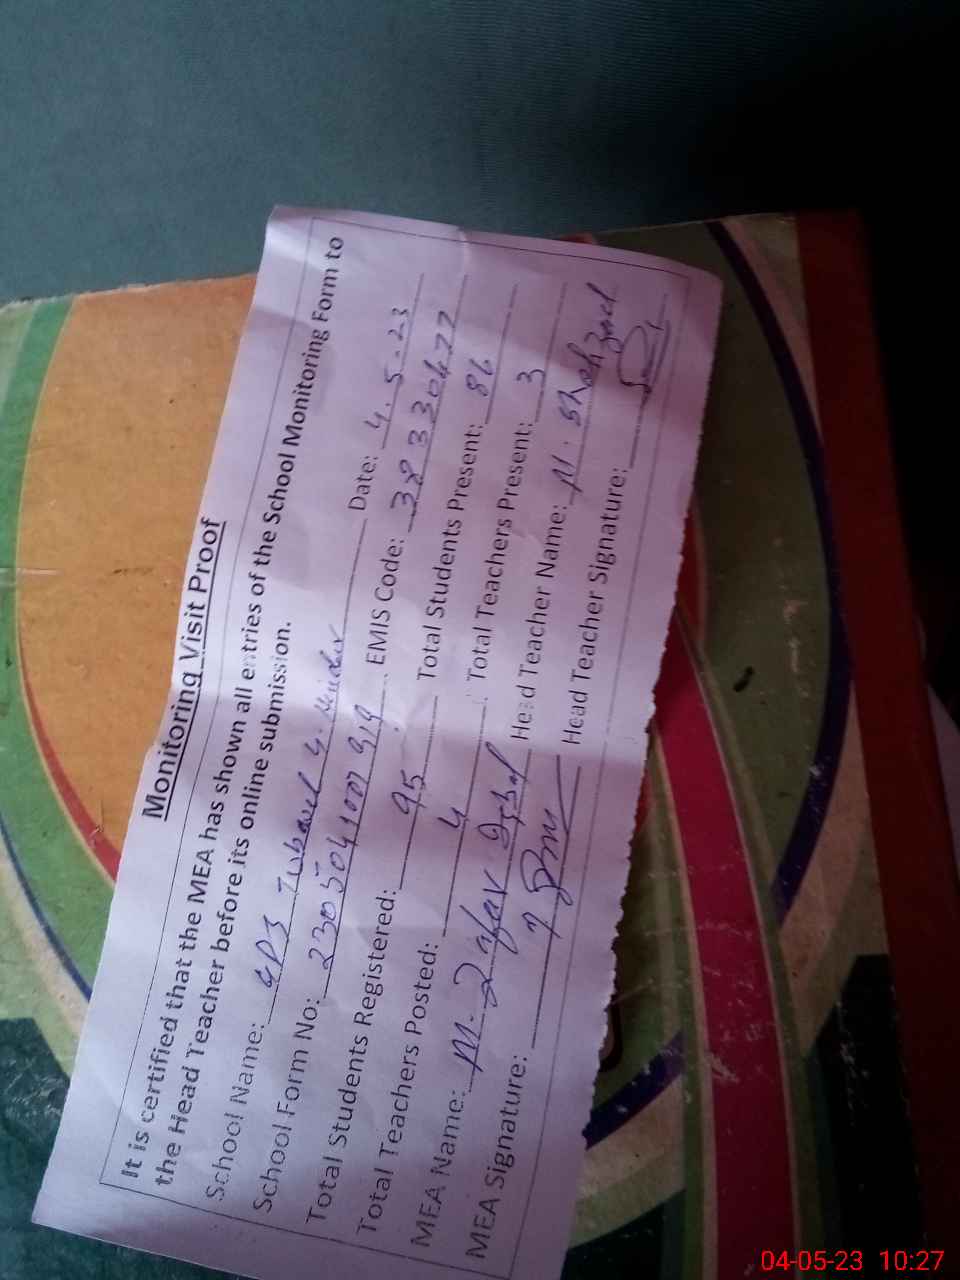 Monitoring Visit Proof
It is certified that the MEA has shown all entries of the School Monitoring Form to
the Head Teacher before its online submission.
School Name: Date: 4.5-23
School Form No: EMIS Code: 38330477
Total Students Registered: 95 Total Students Present: 86
Total Teachers Posted: 4 Total Teachers Present: 3
MEA Name: M. Zafar Iqbal Head Teacher Name: M. Shahzad
MEA Signature: Head Teacher Signature:
04-05-23 10:27